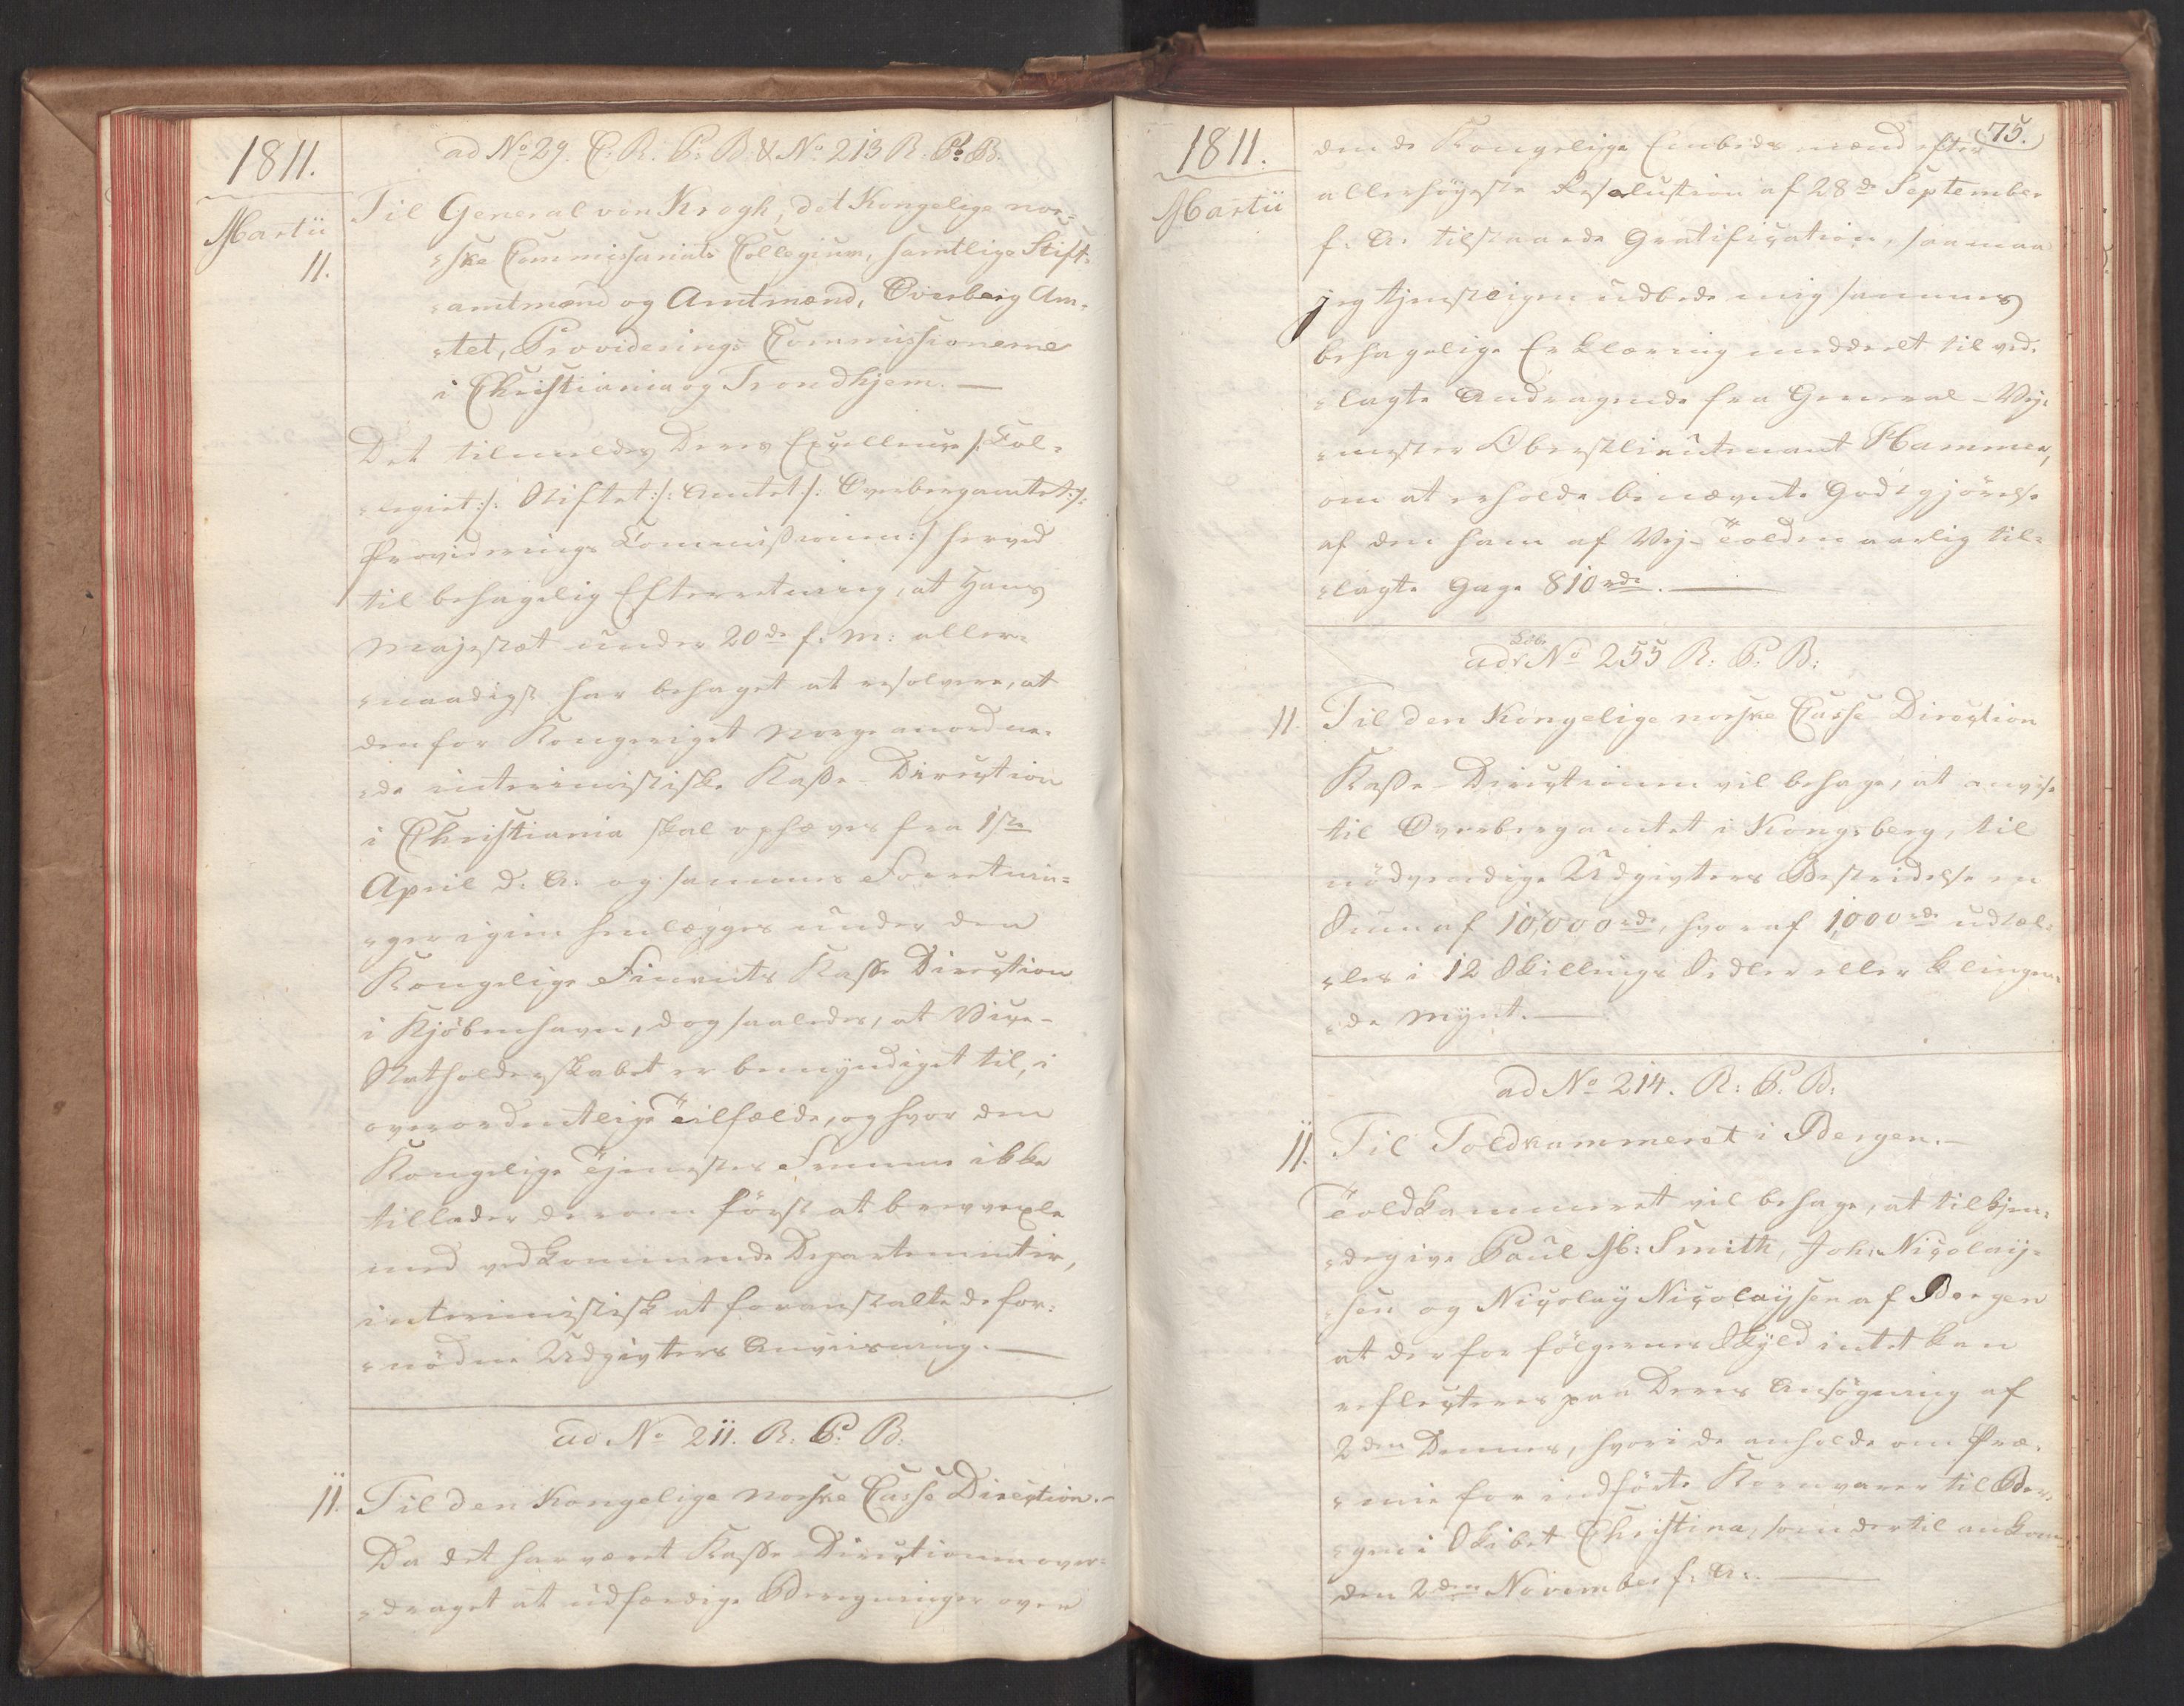 1811.
Martii
11.
ad No 29. C. R. P. B. & No 213 R. P. B.
Til General von Krogh, det Kongelige nor-
-ske Commissariats Collegium, samtlige Stift-
-amtmænd og Amtmænd, Overberg Am-
-tet, Provideringscommissionerne
i Christiania og Trondhjem. —
Det tilmeldes Deres Excellence /: Col-
-legiet :/: Stiftet :/: Amtet :/: Overbergamtet :/:
Providerings Commissionen :/ herved
til behagelig Efterretning, at Hans
Majestæt under 20de f: M: aller-
-naadigst har behaget at resolvere, at
den for Kongeriget Norge anordne-
-de interimistiske Kasse-Direction
i Christiania skal ophæves fra 1ste
April d: A: og sammes Forretnin-
-ger igien henlægges under den
Kongelige Finants Kasse Direction
i Kjöbenhavn, dog saaledes, at Vice-
Statholderskabet er bemyndiget til, i
overordentlige Tilfælde, og hvor den
Kongelige Tjenestes Fremme ikke
tillader derom först at brevvexle
med vedkommende Departementer,
interimistisk at foranstalte de for-
-nödne Udgivters Anviisning. —
ad No 211. R. P. B.
11. Til den Kongelige norske Casse Direction. -
Da det har været Kasse-Directionen over-
-draget at udfærdige Beregninger over
75.
1811.
Martii
den de Kongelige Embedsmænd efter
allerhöyeste Resolution af 28de September
f: A: tilstaaede Gratification, saa maa
jeg tjenstligen udbede mig sammes
behagelige Erklæring meddeelt til ved-
-lagte Andragende fra General-Vej-
-mester Oberstlieutenant Hammer,
om at erholde benævnte Godtgjörelse
af den ham af Vej-Tolden aarlig til-
-lagte Gage 810 rdr. —
ad No 255 R: P: B:
11. Til den Kongelige norske Casse Direction
Kasse-Directionen vil behage, at anvise
til Overbergamtet i Kongsberg, til
nödvendige Udgivters Bestridelse en
Sum af 10,000 rdr, hvoraf 1,000 rdr udtæl-
-les i 12 Skillings Sedler eller klingen-
-de Mynt. —
ad No 214. R: P. B.
11. Til Toldkammeret i Bergen. —
Toldkammeret vil behage, at tilkjen-
-degive Paul M: Smith, Joh: Nicolay-
sen og Nicolay Nicolaysen af Bergen
at der for fölgernes Skyld intet kan
reflecteres paa Deres Ansögning af
2den Dennes, hvori de anholde om Præ-
-mie for indförte Kornvarer til Ber-
-gen i Skibet Christina, som dertil ankom
den 2den November f: A: —